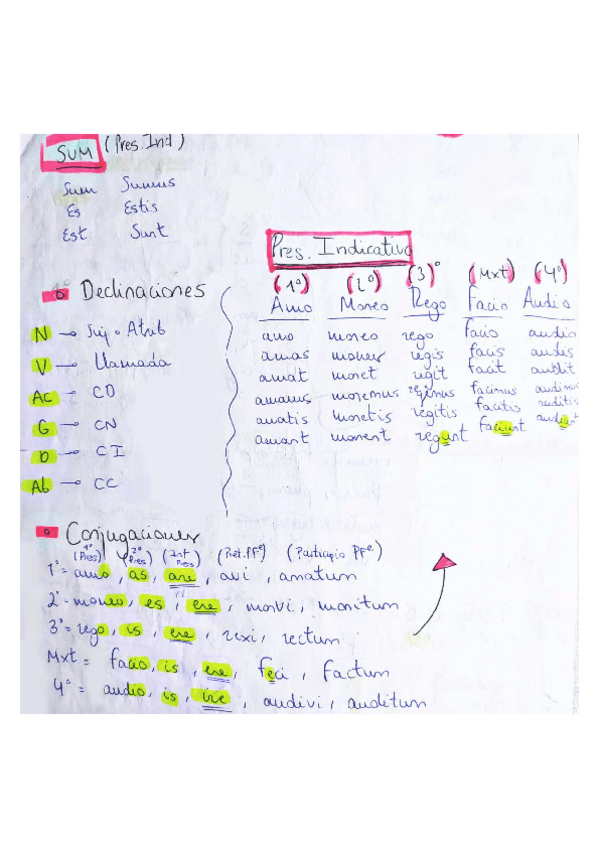 SUM (Pres. Ind)
Sum Sumus
Es Estis
Est Sunt
Pres. Indicativo
(1º) (2º) (3)º (Mxt) (4º)
Amo Moneo Rego Facio Audio
amo moneo rego facio audio
amas mones regis facis audis
amat monet regit facit audit
amamus monemus regimus facimus audimus
amatis monetis regitis facitis auditis
amant monent regunt faciunt audiunt
Declinaciones
N → Suj. o Atrib
V → Llamada
AC → CD
G → CN
D → CI
Ab → CC
Conjugaciones
(1º Pres) (2º Pres) (Inf Pres) (Pret. Pfº) (Participio Pfº)
1º = amo, as, are, avi, amatum
2º - moneo, es, ere, monvi, monitum
3º = rego, is, ere, rexi, rectum
Mxt = facio, is, ere, feci, factum
4º = audio, is, ire, audivi, auditum